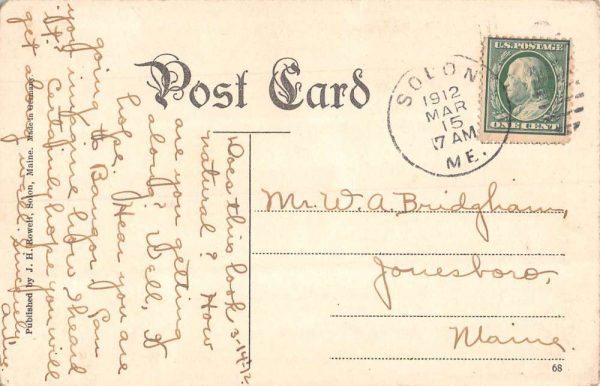 Post Card
U.S. POSTAGE
ONE CENT
SOLON
1912
MAR
15
7 AM
ME.
3-14-12.
Does this look
natural? How
are you getting
along? Well, I
hope. Hear you are
going to Bangor. Can
you imagine how I heard
it. Certainly hope you will
get
Mr. W. A. Bridgham,
Jonesboro,
Maine
Published by J. H. Rowell, Solon, Maine. Made in Germany.
68